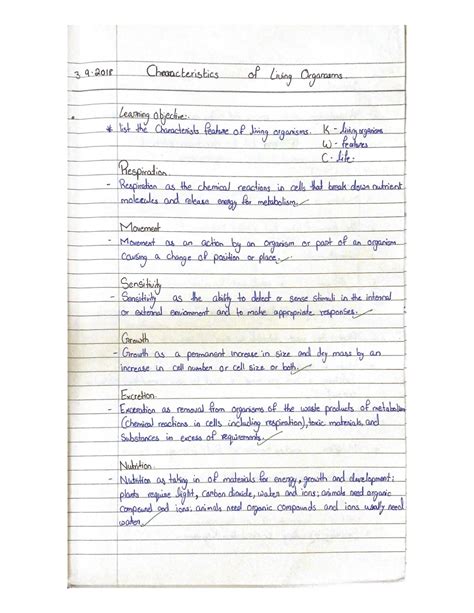 3.9.2018 Characteristics of Living Organisms
Learning objective:
* list the Characterists feature of living organisms. K - living organisms
W - features
C - life.
Respiration
- Respiration as the chemical reactions in cells that break down nutrient
molecules and release energy for metabolism.
Movement
- Movement as an action by an organism or part of an organism
causing a change of position or place.
Sensitivity
- Sensitivity as the ability to detect or sense stimuli in the internal
or external enviornment and to make appropriate responses.
Growth
- Growth as a permanent increase in size and dry mass by an
increase in cell number or cell size or both.
Excretion
- Excreation as removal from organisms of the waste products of metabolism
(Chemical reactions in cells including respiration), toxic materials, and
Substances in excess of requirements.
Nutrition
- Nutrition as taking in of materials for energy, growth and development;
plants require light, Carbon dioxide, water and ions; animals need organic
compound and ions; animals need organic compounds and ions usually need
water.